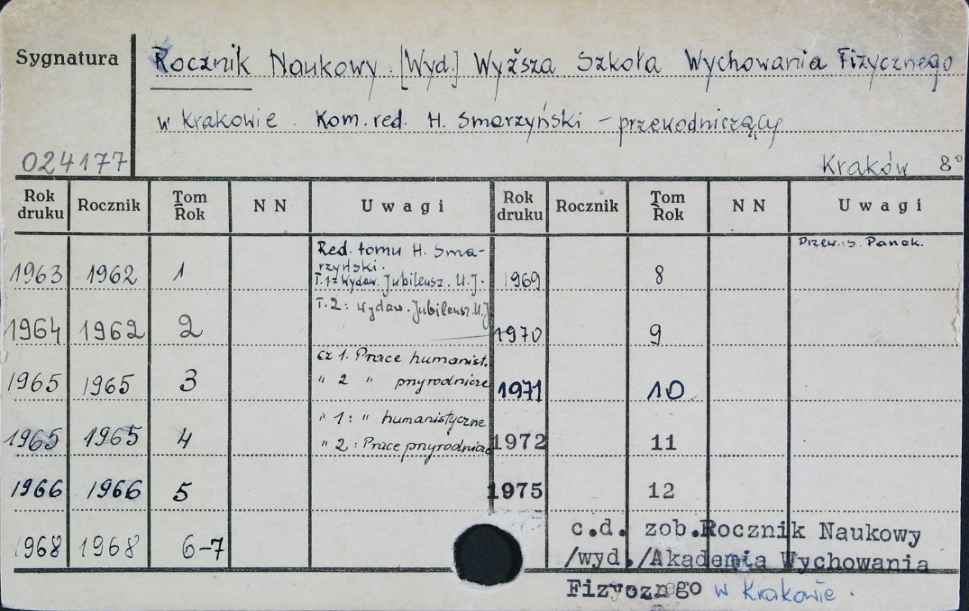 Sygnatura
Rocznik Naukowy. [Wyd.] Wyższa Szkoła Wychowania Fizycznego
w Krakowie. Kom. red. H. Smarzyński - przewodniczący
024177
Kraków 8°
Rok druku Rocznik Tom Rok N N Uwagi Rok druku Rocznik Tom Rok N N Uwagi
1963 1962 1 Red. tomu H. Smarzyński. T. 1: Wydaw. Jubileusz. U.J. 1969 8 Przew. S. Panek.
1964 1962 2 T. 2: Wydaw. Jubileusz. U.J 1970 9
1965 1965 3 cz 1. Prace humanist. " 2 " przyrodnicze 1971 10
1965 1965 4 " 1: " humanistyczne " 2: Prace przyrodnicze 1972 11
1966 1966 5 1975 12
1968 1968 6-7
c.d. zob. Rocznik Naukowy
/wyd./Akademia Wychowania
Fizyczngo w Krakowie.